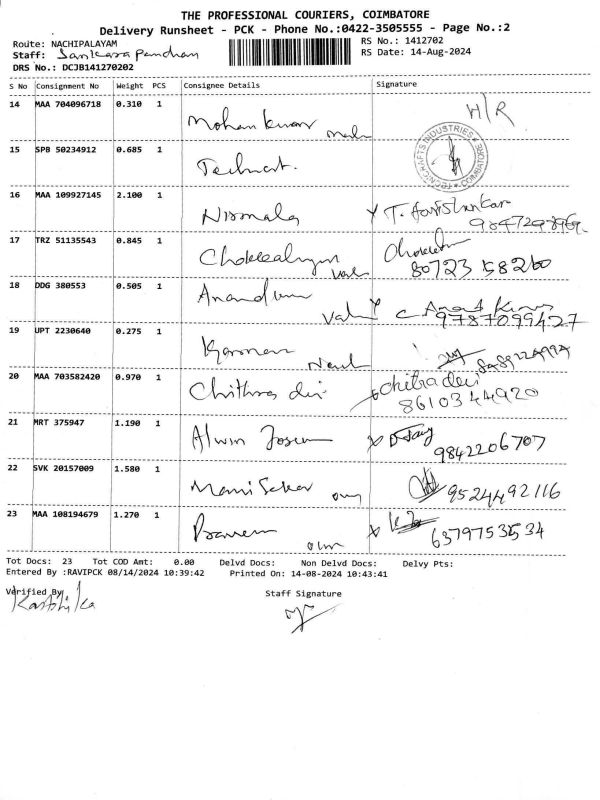 THE PROFESSIONAL COURIERS, COIMBATORE
Delivery Runsheet - PCK - Phone No.:0422-3505555 - Page No.:2
Route: NACHIPALAYAM RS No.: 1412702
Staff: Sankara pandian RS Date: 14-Aug-2024
DRS No.: DCJB141270202
S No Consignment No Weight PCS Consignee Details Signature
14 MAA 704096718 0.310 1 H/R
Mohan Kumar
15 SPB 50234912 0.685 1 TECHCRAFTS INDUSTRIES COIMBATORE
16 MAA 109927145 2.100 1
Nirmala T.
17 TRZ 51135543 0.845 1
80723 58260
18 DDG 380553 0.505 1
Anand C Anand
9787099427
19 UPT 2230640 0.275 1
20 MAA 703582420 0.970 1 chitra devi
Chithra devi 8610344920
21 MRT 375947 1.190 1
Alwin 9842206707
22 SVK 20157009 1.580 1
Mani Sekar 9524492116
23 MAA 108194679 1.270 1
Tot Docs: 23 Tot COD Amt: 0.00 Delvd Docs: Non Delvd Docs: Delvy Pts:
Entered By :RAVIPCK 08/14/2024 10:39:42 Printed On: 14-08-2024 10:43:41
Verified By Staff Signature
Karthika